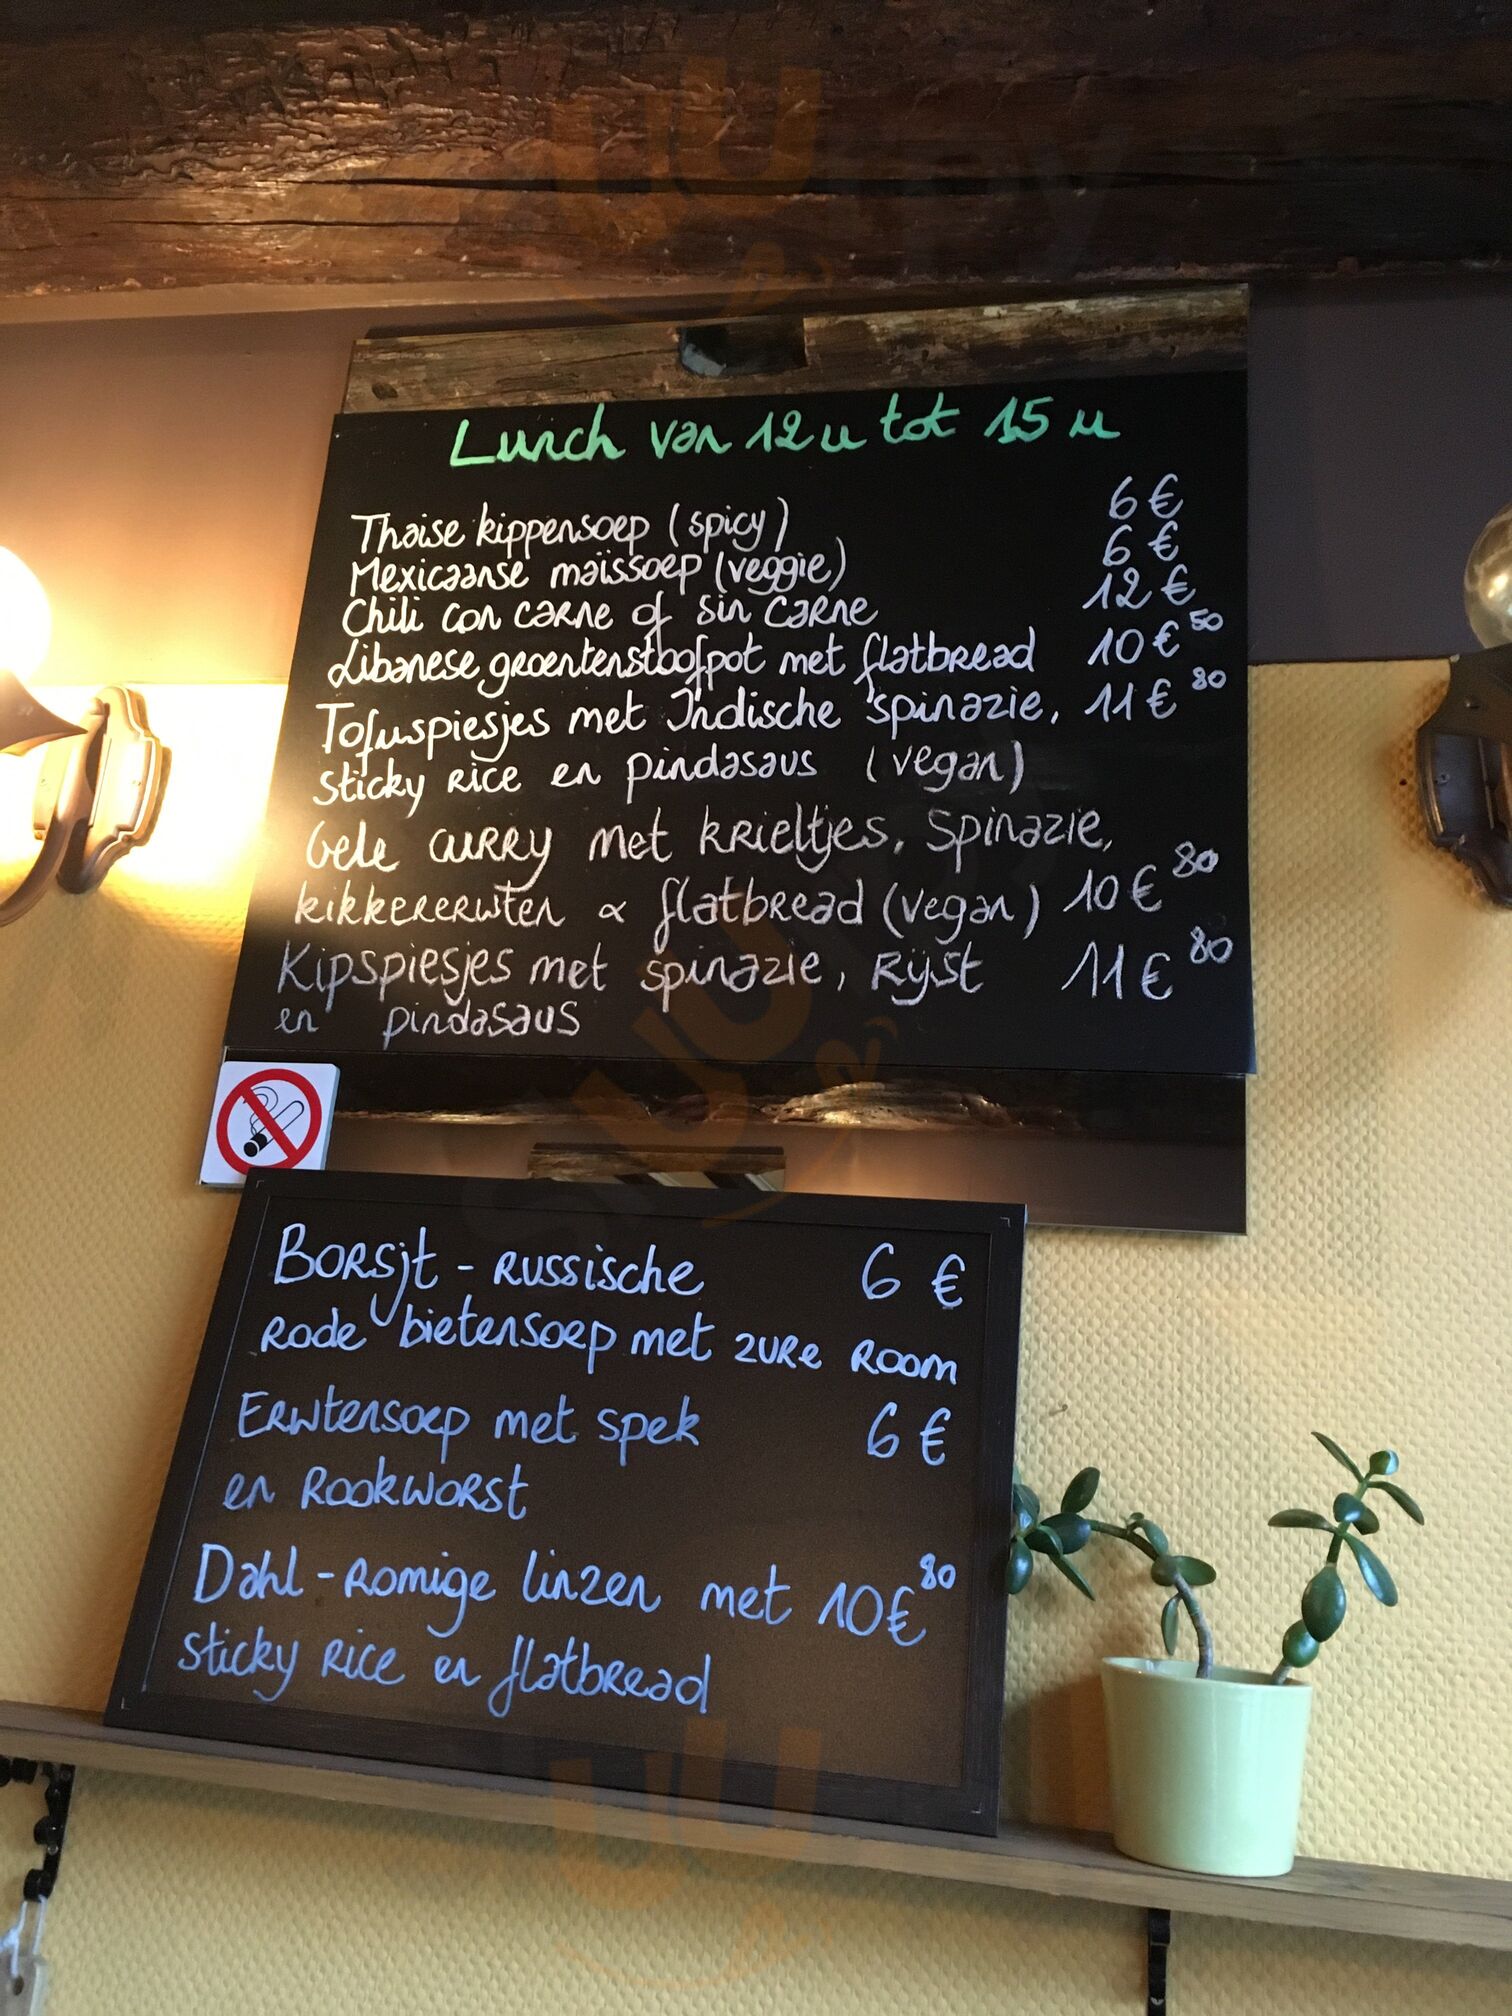 Lunch van 12u tot 15u
Thaise kippensoep (spicy) 6 €
Mexicaanse maïssoep (veggie) 6 €
Chili con carne of sin carne 12 €
Libanese groentenstoofpot met flatbread 10 € 50
Tofuspiesjes met Indische spinazie, 11 € 80
sticky rice en pindasaus (vegan)
Gele curry met krieltjes, spinazie,
kikkererwten & flatbread (vegan) 10 € 80
Kipspiesjes met spinazie, rijst 11 € 80
en pindasaus
Borsjt - russische 6 €
rode bietensoep met zure room
Erwtensoep met spek 6 €
en rookworst
Dahl - romige linzen met 10 € 80
sticky rice en flatbread